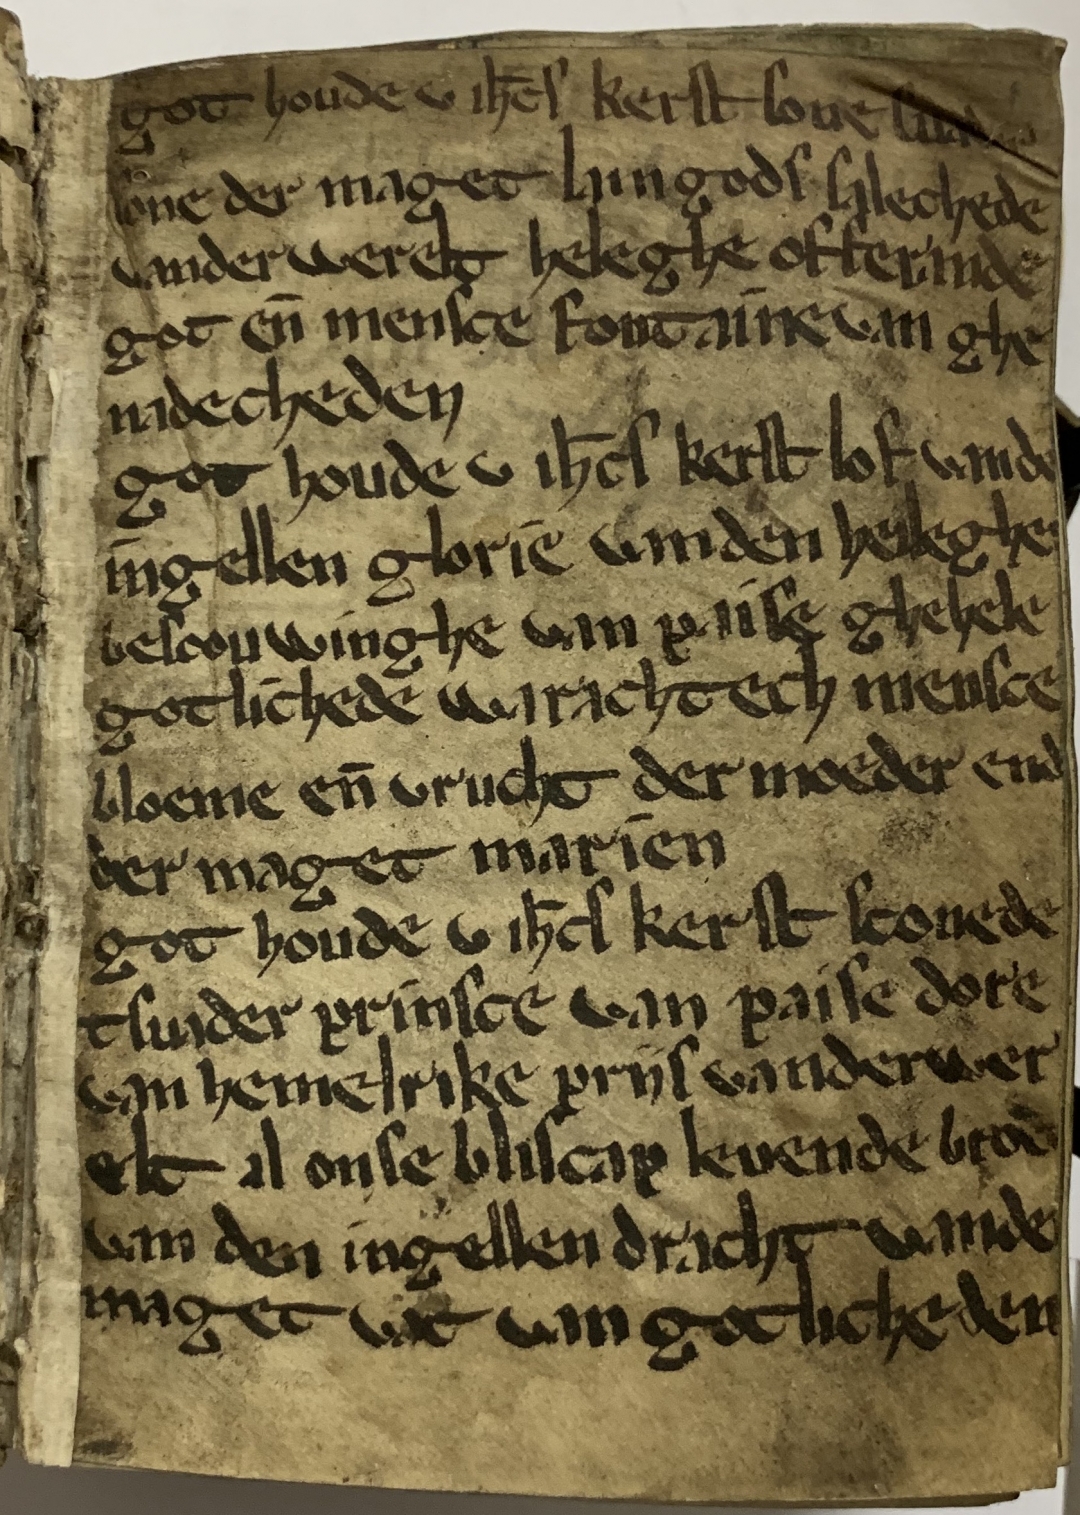 got houde v ih̄cſ kerſt ſone
ſone der maget lam godſ ſalechede
vander werelt heleghe offerinde
got en̄ menſce fontaīne van ghe
nadecheden
got houde v ih̄cſ kerſt lof vande
ingellen glorie vanden heileghe
beſcouwinghe van paiſe ghehele
gotlichede warachtech menſce
bloeme en̄ vrucht der moeder end
der maget marien
got houde v ih̄cſ kerſt ſconede
tſuader prinſce van paiſe dore
van hemelrike prijſ vanderwer
elt al onſe bliſcap leuende broe
van den ingellen dracht vande
maget vat van gotlicheden